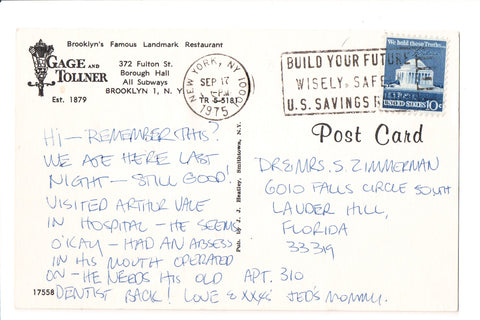 Brooklyn's Famous Landmark Restaurant
GAGE AND TOLLNER
Est. 1879
372 Fulton St.
Borough Hall
All Subways
BROOKLYN 1, N.Y.
TR 5-5181
NEW YORK, NY
SEP 17
PM
1975
BUILD YOUR FUTURE
WISELY SAFE
U.S. SAVINGS
We hold these Truths...
UNITED STATES 10c
Post Card
HI — REMEMBER THIS?
WE ATE HERE LAST
NIGHT — STILL GOOD!
VISITED ARTHUR VALE
IN HOSPITAL — HE SEEMS
O'KAY — HAD AN ABSESS
IN HIS MOUTH OPERATED
ON — HE NEEDS HIS OLD
DENTIST BACK! LOVE & XXXX JED'S MOMMY.
17558
Pub. by J. J. Headley, Smithtown, N. Y.
DR & MRS. S. ZIMMERMAN
6010 FALLS CIRCLE SOUTH
LAUDER HILL,
FLORIDA
33319
APT. 310